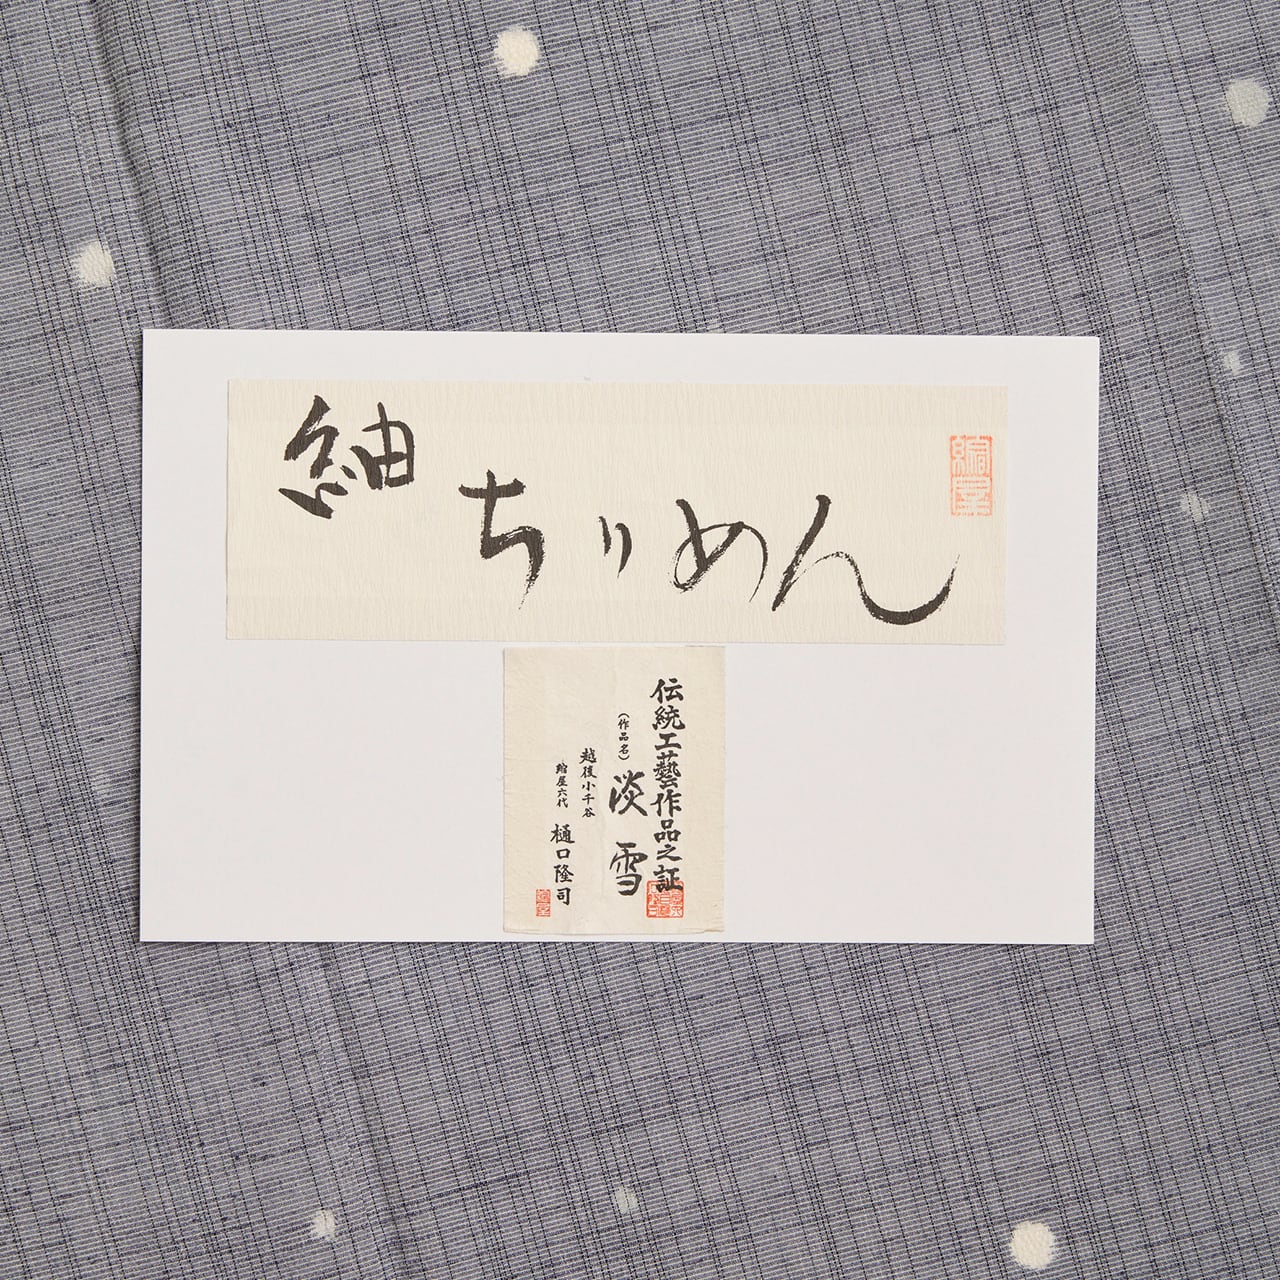 紬ちりめん
伝統工藝作品之証
（作品名）淡雪
越後小千谷
紬屋六代 樋口隆司